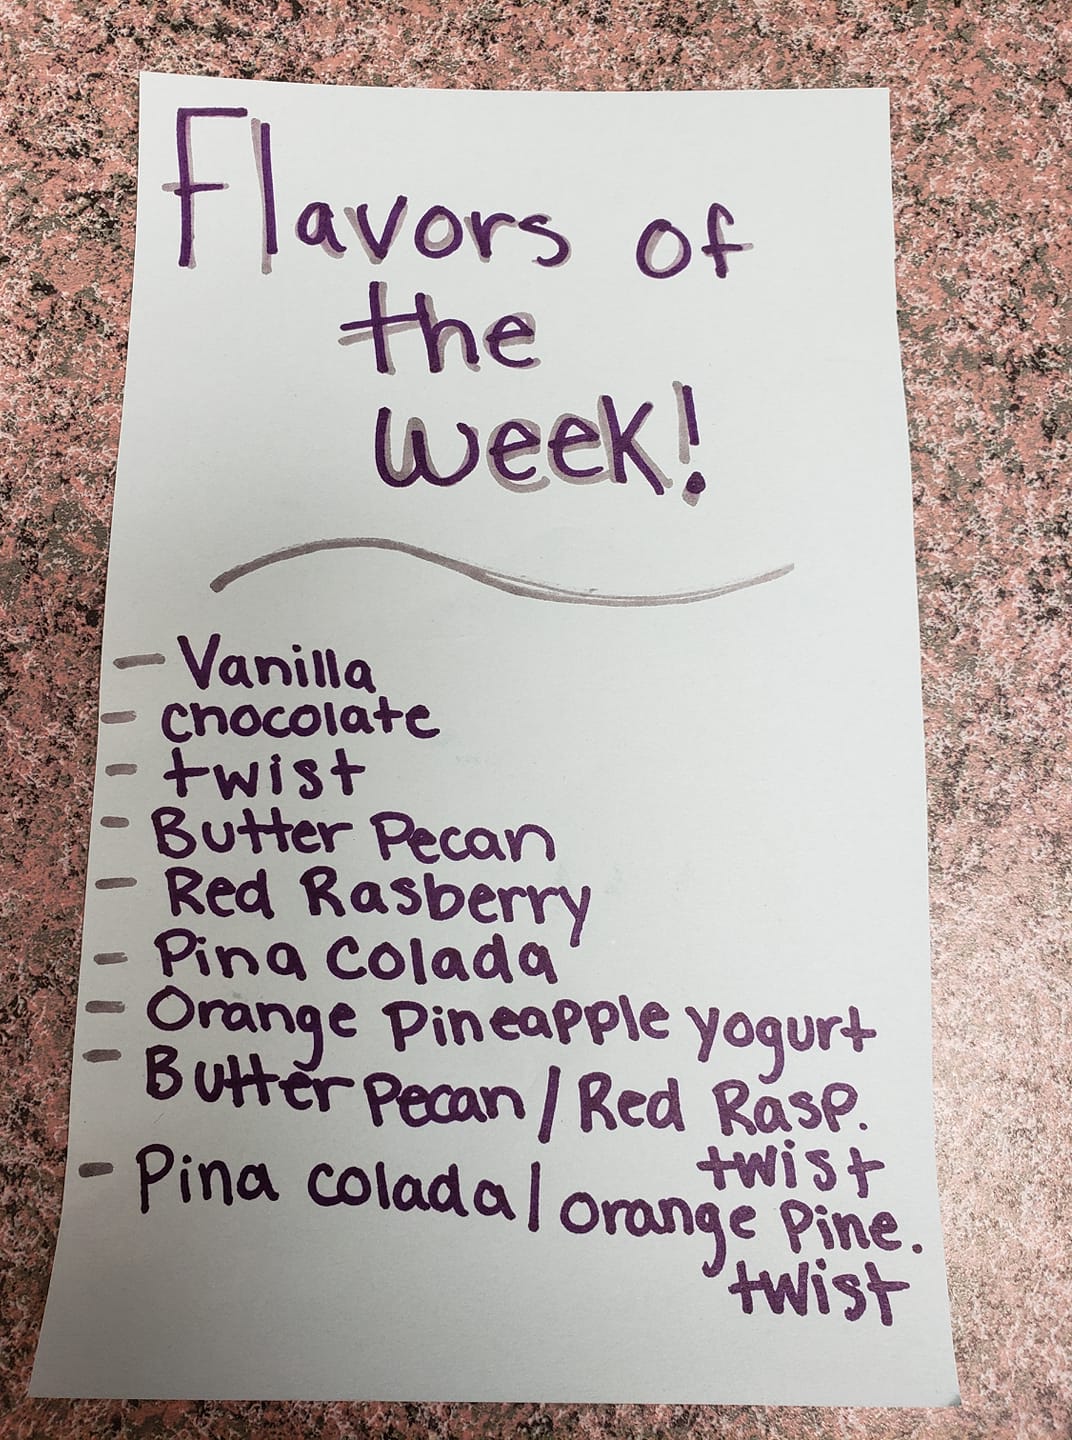 Flavors of
the
week!
- Vanilla
- chocolate
- twist
- Butter Pecan
- Red Rasberry
- Pina Colada
- Orange Pineapple yogurt
- Butter Pecan / Red Rasp.
twist
- Pina colada / orange Pine.
twist